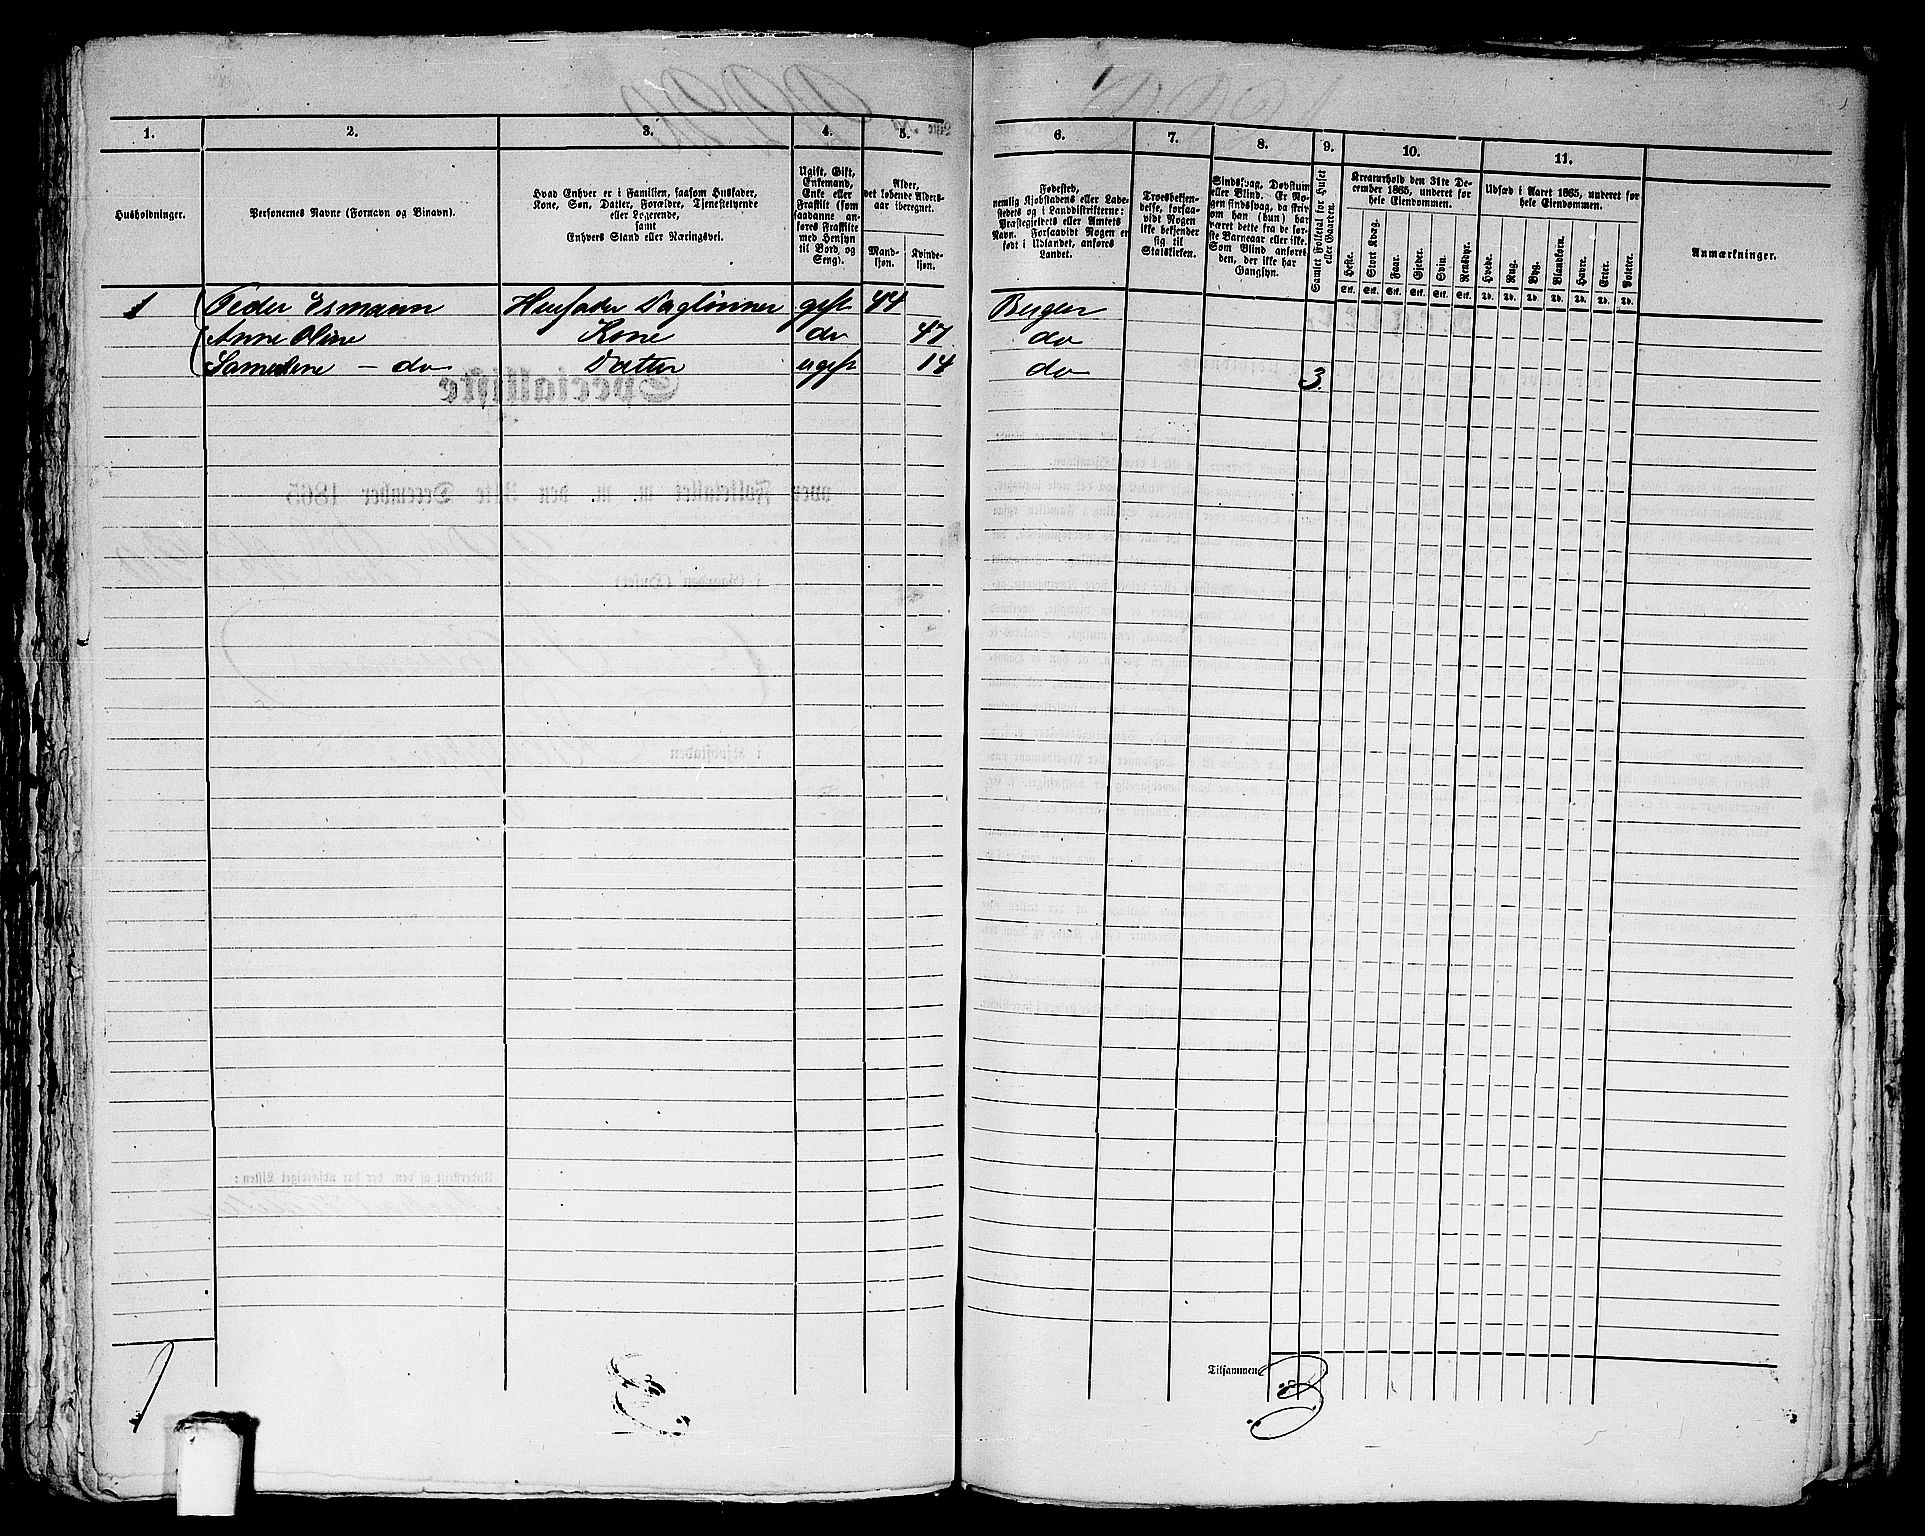 1. 2. 3. 4. 5.
Husholdninger.
Personernes Navne (Fornavn og Binavn).
Hvad Enhver er i Familien, saasom Husfader,
Kone, Søn, Datter, Forældre, Tjenestetyende
eller Logerende,
samt
Enhvers Stand eller Næringsvei.
Ugift, Gift,
Enkemand,
Enke eller
Fraskilte (som
saadanne an-
føres Fraskilte
med Hensyn
til Bord og
Seng).
Alder,
det løbende Alders-
aar iberegnet.
Mand-
kjøn.
Kvinde-
kjøn.
1 Peder Esmann Huusfader Daglønner gift 44
Anne Oline Kone do 47
do Datter ugift 14
6. 7. 8. 9. 10. 11.
Fødested,
nemlig Kjøbstadens eller Lade-
stedets og i Landdistrikterne:
Præstegjeldets eller Amtets
Navn. Forsaavidt Nogen er
født i Udlandet, anføres
Landet.
Troesbekjen-
delse, forsaa-
vidt Nogen
ikke bekjender
sig til
Statskirken.
Sindssvag, Døvstum
eller Blind. Er No-
gen sindssvag, da skriv
om han (hun) har
været dette fra de før-
ste Barneaar eller ikke.
Som Blind anføres
den, der ikke har
Gangsyn.
Samlet Folketal for Huset
eller Gaarden.
Kreaturhold den 31te De-
cember 1865, underet for
hele Eiendommen.
Heste. Stort Kvæg. Faar. Gjeder. Svin. Rensdyr.
Stk. Stk. Stk. Stk. Stk. Stk.
Udsæd i Aaret 1865, underet for
hele Eiendommen.
Hvede. Rug. Byg. Blandkorn. Havre. Erter. Poteter.
Td. Td. Td. Td. Td. Td. Td.
Anmærkninger.
Bergen
do
do 3
Tilsammen 3